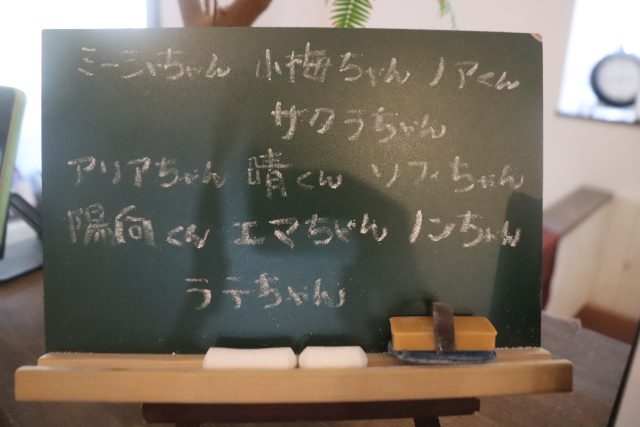 ミーシャちゃん 小梅ちゃん ノアくん
サクラちゃん
アリアちゃん 晴くん ソフィちゃん
陽向くん エマちゃん ノンちゃん
ラテちゃん